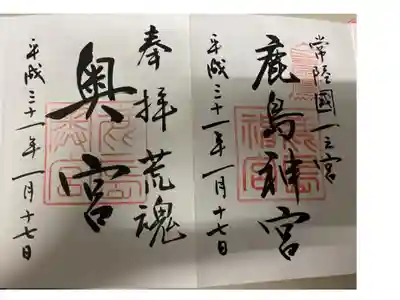 常陸國一之宮
鹿島神宮
平成三十一年一月十七日
奉拝 荒魂
奥宮
平成三十一年一月十七日